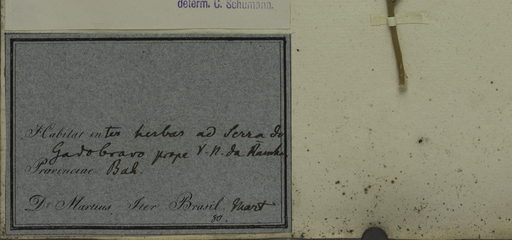 determ. C. Schumann.
Habitat inter herbas ad Serra do
Gado bravo prope V. N. da Rainha
Provinciae Bah.
Dr Martius Iter Brasil. Mart